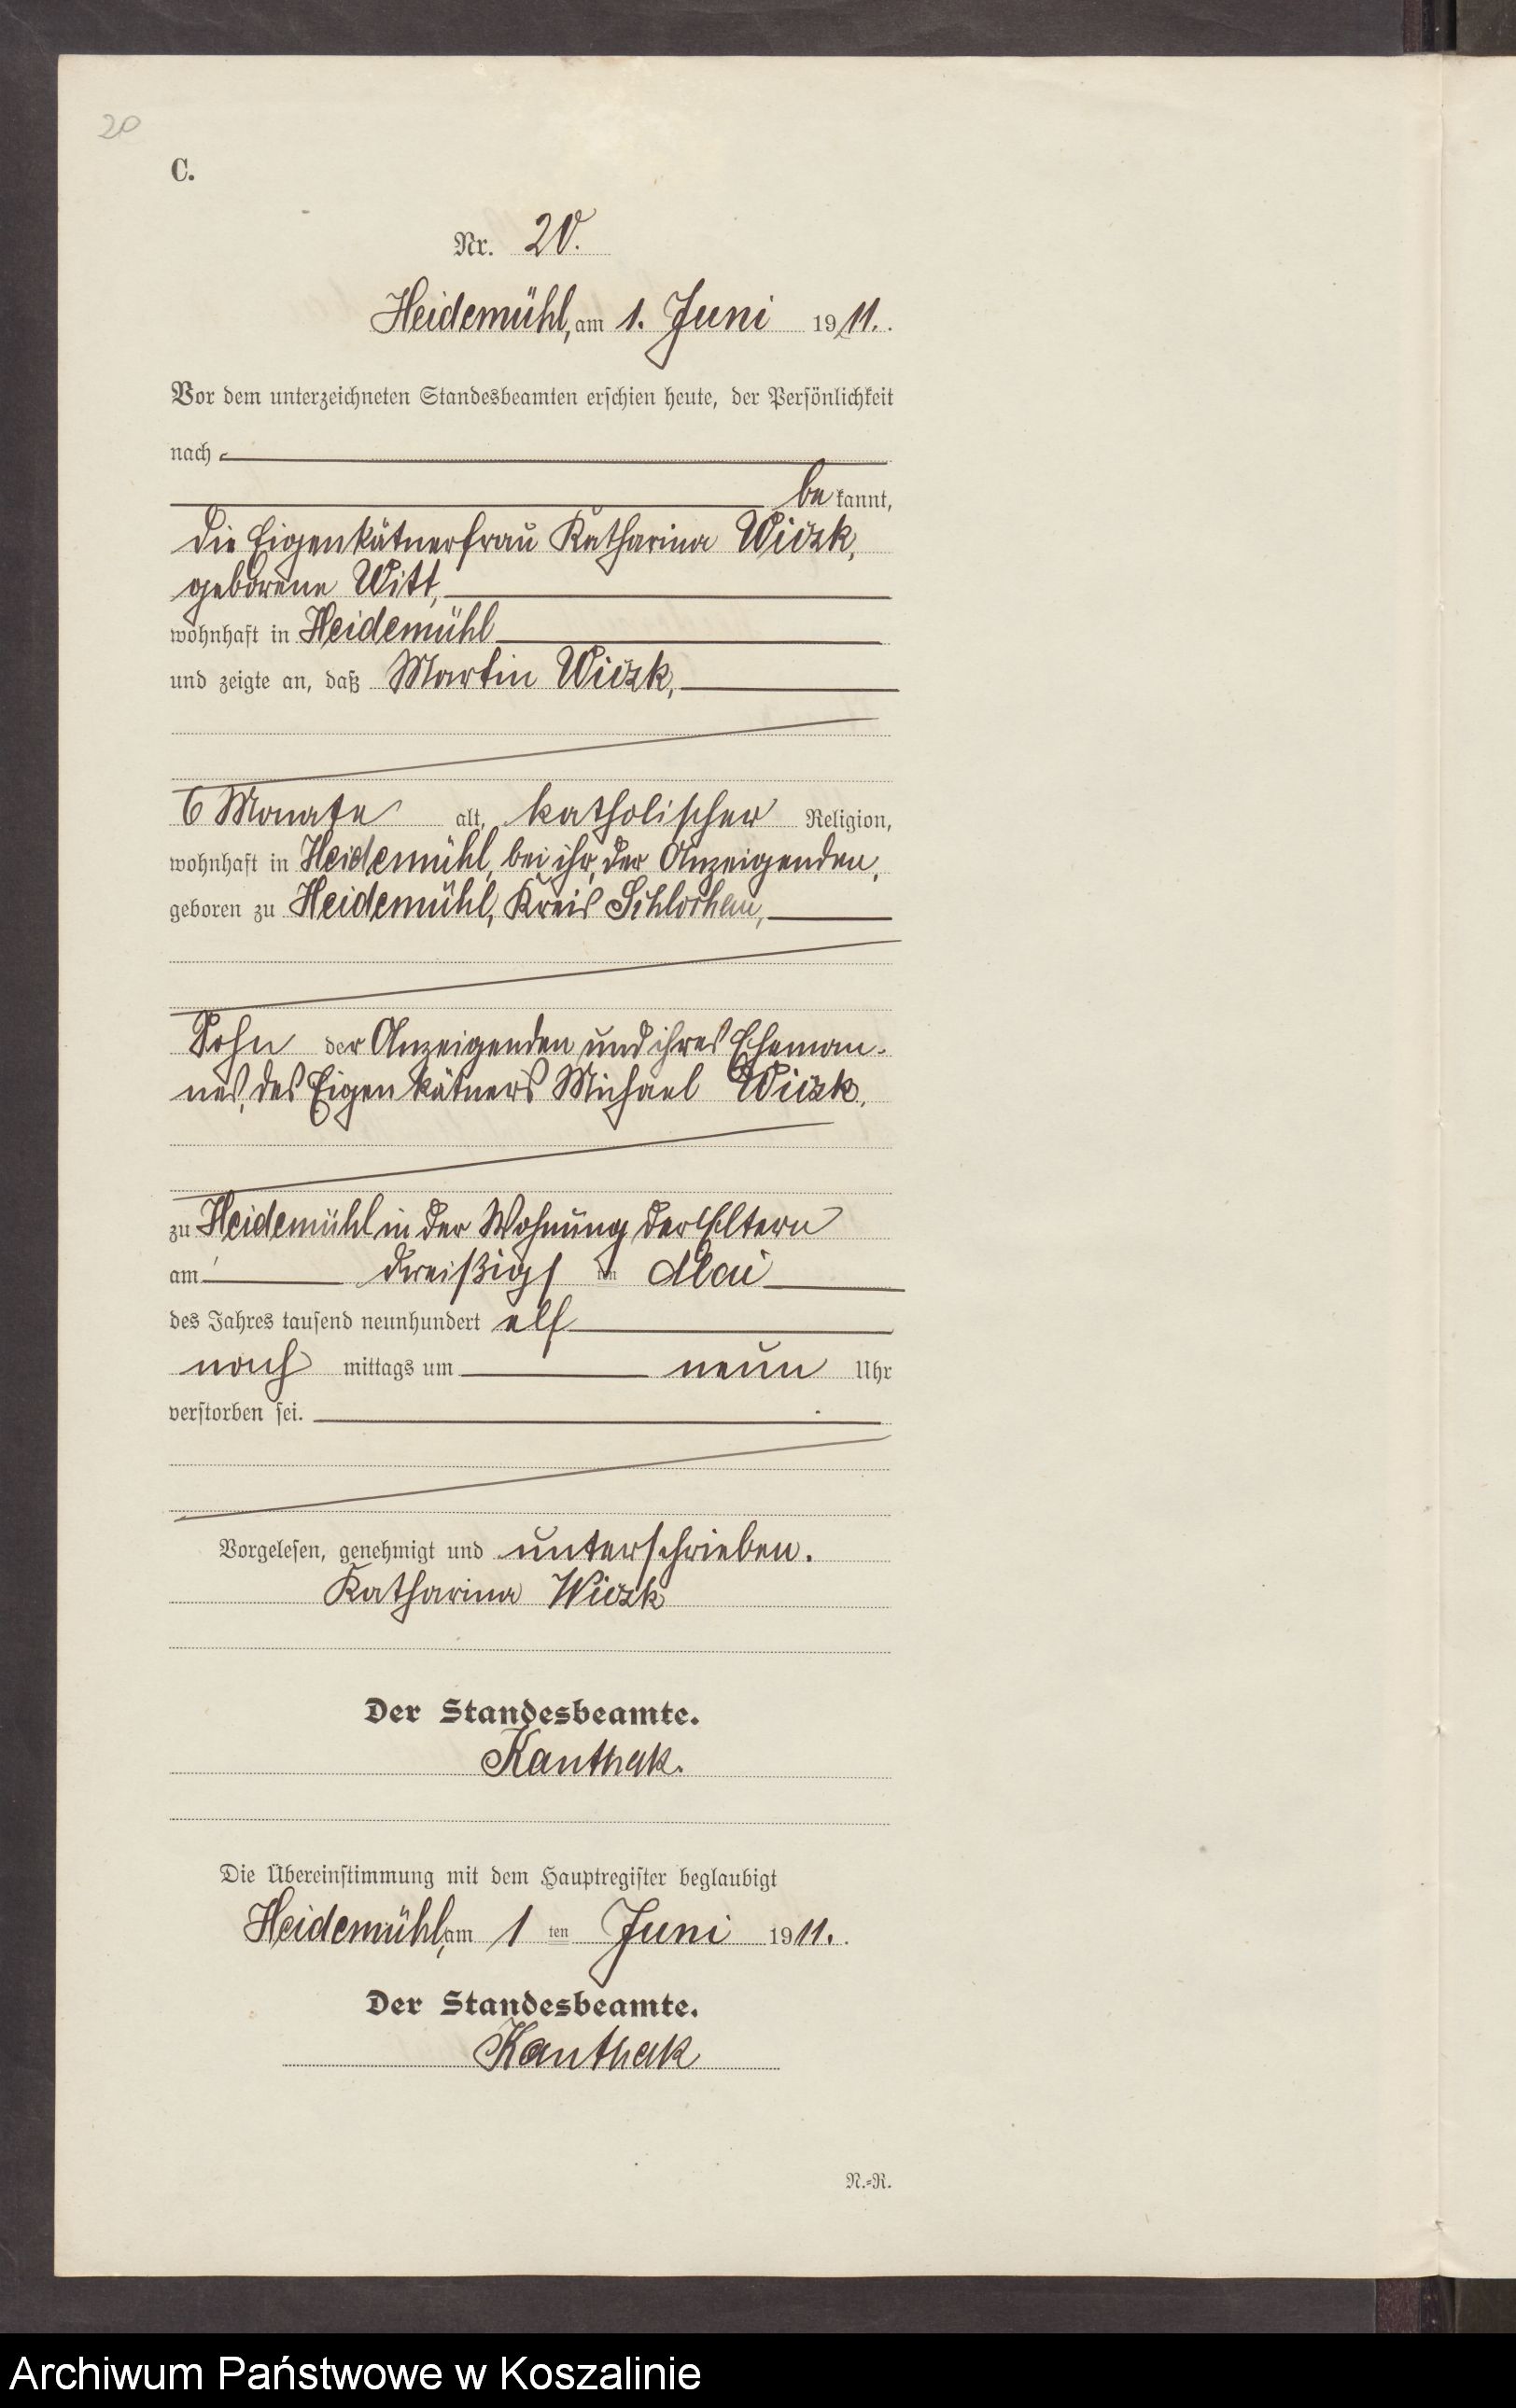 20
C.
Nr. 20.
Heidemühl, am 1. Juni 1911.
Vor dem unterzeichneten Standesbeamten erschien heute, der Persönlichkeit
nach
bekannt,
die Eigenkätnerfrau Katharina
geborene Witt,
wohnhaft in Heidemühl
und zeigte an, daß Martin
6 Monate alt, katholischer Religion,
wohnhaft in Heidemühl, bei ihr, der Anzeigenden,
geboren zu Heidemühl, Kreis Schlochau,
Sohn der Anzeigenden und ihres Eheman-
nes, des Eigenkätners Michael
zu Heidemühl in der Wohnung der Eltern
am dreißigst en Mai
des Jahres tausend neunhundert elf
nach mittags um neun Uhr
verstorben sei.
Vorgelesen, genehmigt und unterschrieben.
Katharina
Der Standesbeamte.
Kanthak.
Die Übereinstimmung mit dem Hauptregister beglaubigt
Heidemühl, am 1 ten Juni 1911.
Der Standesbeamte.
Kanthak
N.-R.
Archiwum Państwowe w Koszalinie